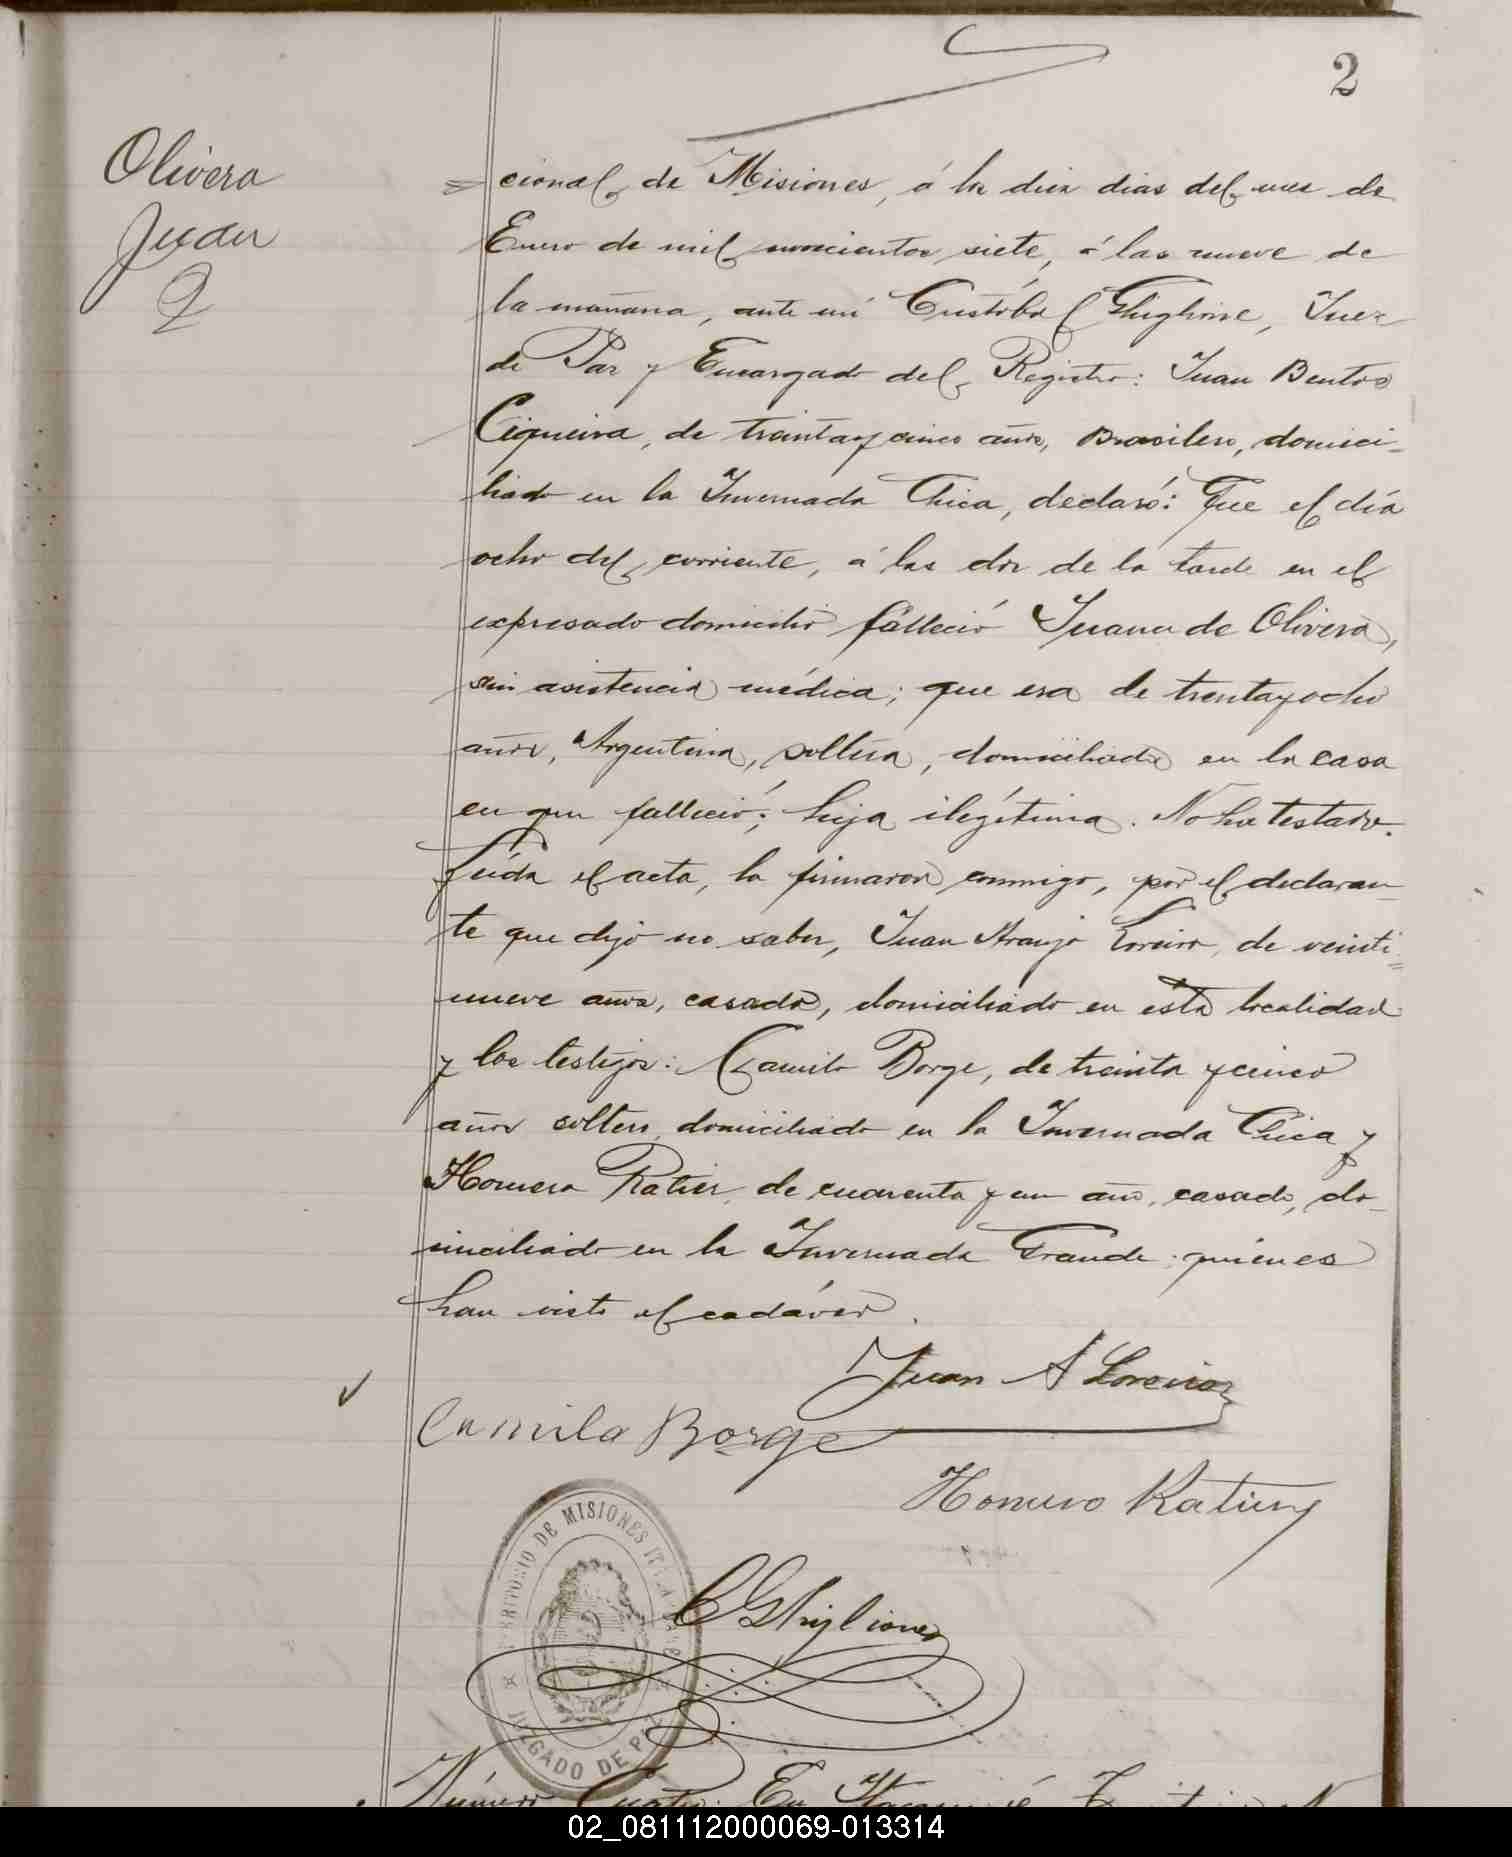 2
Olivera
Juan
2
cional de Misiones, á los diez dias del mes de
Enero de mil novecientos siete, á las nueve de
la mañana, ante mi Cristóbal Ghiglione, Juez
de Paz y Encargado del Registro: Juan Bentos
Ciqueira, de treinta y cinco años, Brasilero, domici-
liado en la Invernada Chica, declaró: Que el día
ocho del corriente, á las dos de la tarde en el
expresado domicilio falleció Juana de Olivera,
sin asistencia médica; que era de trentayocho
años, Argentina, soltera, domiciliada en la casa
en que falleció; hija ilegítima. No ha testado.
Leida el acta, la firmaron conmigo, por el declaran-
te que dijo no saber, Juan Araujo Loreiro, de veinti-
nueve años, casado, domiciliado en esta localidad
y los testigos: Camilo Borge, de treinta y cinco
años soltero, domiciliado en la Invernada Chica y
Homero Ratier, de cuarenta y un año, casado, do-
miciliado en la Invernada Grande; quienes
han visto el cadáver.
Juan A Loreiro
Camilo Borge
Homero Ratier
TERRITORIO DE MISIONES
C Ghiglione
JUZGADO DE PAZ
Número Cuatro: En Itacaruaré, Territorio
02_081112000069-013314